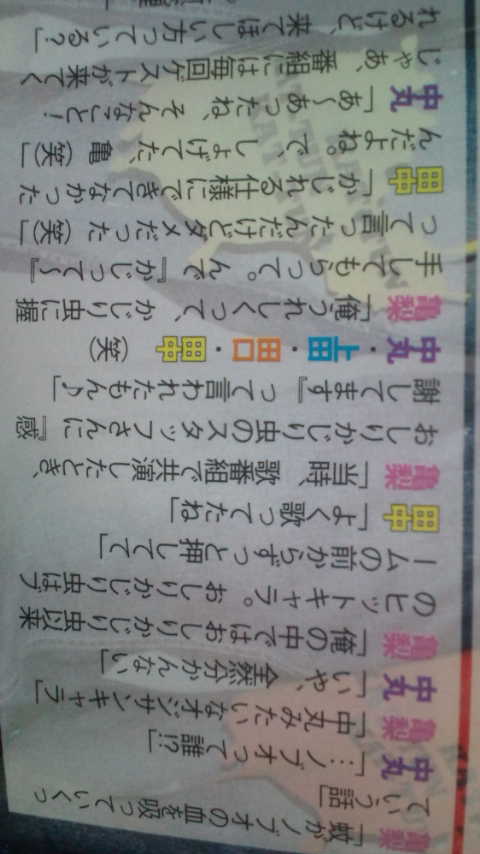 亀梨「蚊がノブオの血を吸っていくっ
ていう話」
中丸「…ノブオって誰!?」
亀梨「中丸みたいなオジサンキャラ」
中丸「いや、全然分かんない」
亀梨「俺の中ではおしりかじり虫以来
のヒットキャラ。おしりかじり虫はブ
ームの前からずっと押してて」
田中「よく歌ってたね」
亀梨「当時、歌番組で共演したとき、
おしりかじり虫のスタッフさんに『感
謝してます』って言われたもん♪」
中丸・上田・田口・田中(笑)
亀梨「俺うれしくって、かじり虫に握
手してもらって。んで『かじって〜』
って言ったんだけどダメだった(笑)」
田中「かじれる仕様にできてなかった
んだよね。で、しょげてた、亀(笑)」
中丸「あ〜あったね、そんなこと!
じゃあ、番組には毎回ゲストが来てく
れるけど、来てほしい方っている?」